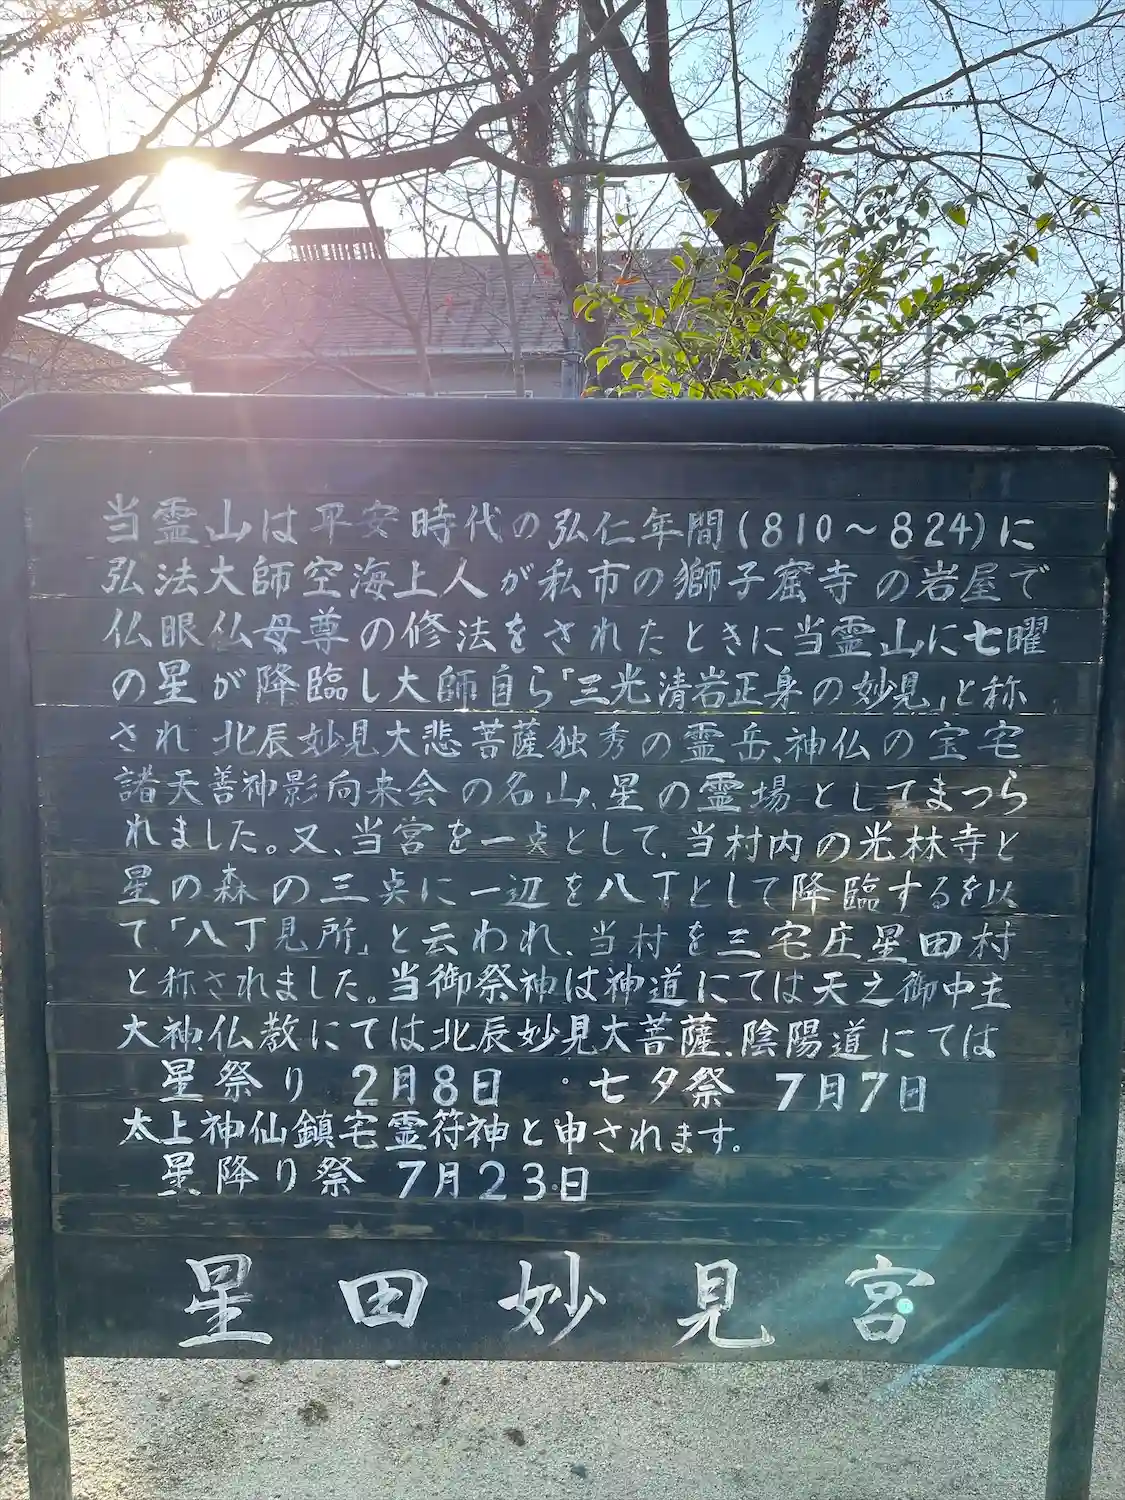 当霊山は平安時代の弘仁年間(810～824)に
弘法大師空海上人が私市の獅子窟寺の岩屋で
仏眼仏母尊の修法をされたときに当霊山に七曜
の星が降臨し大師自ら「三光清岩正身の妙見」と称
され北辰妙見大悲菩薩独秀の霊岳、神仏の宝宅
諸天善神影向来会の名山、星の霊場としてまつら
れました。又、当宮を一点として、当村内の光林寺と
星の森の三点に一辺を八丁として降臨するを以
て「八丁見所」と云われ、当村を三宅庄星田村
と称されました。当御祭神は神道にては天之御中主
大神、仏教にては北辰妙見大菩薩、陰陽道にては
星祭り 2月8日 ・七夕祭 7月7日
太上神仙鎮宅霊符神と申されます。
星降り祭 7月23日
星田妙見宮